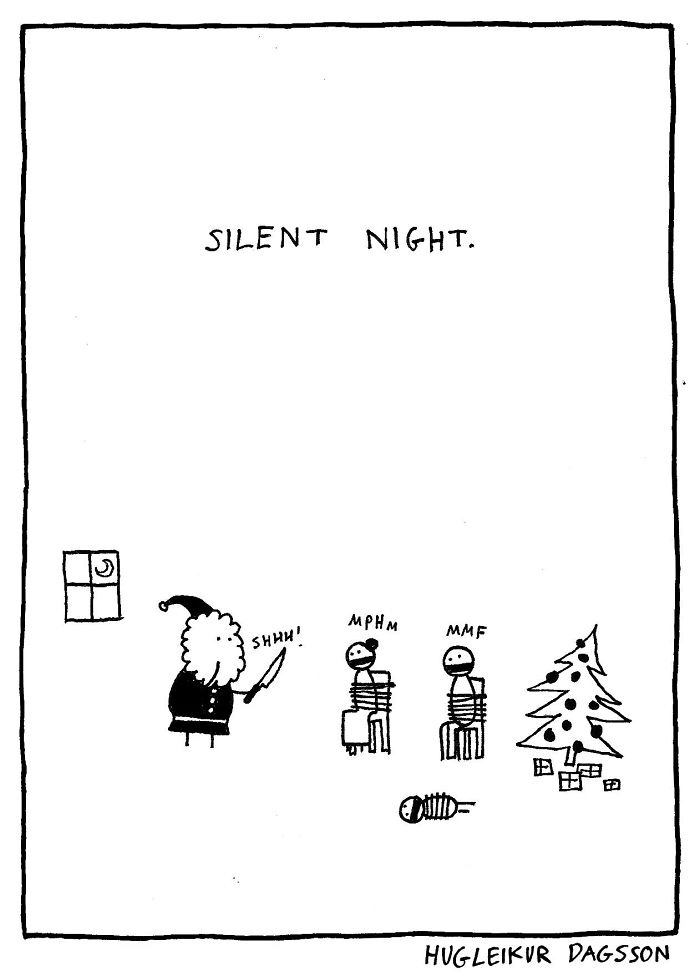 SILENT NIGHT.
SHHH!
MPHM
MMF
HUGLEIKUR DAGSSON